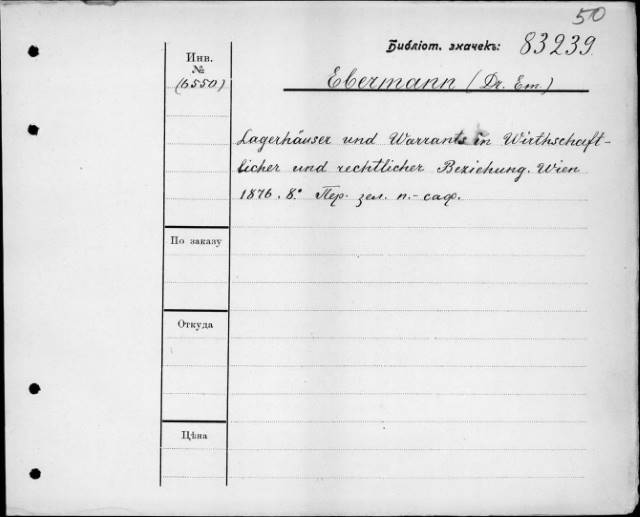 50
Библіот. значекъ: 83239
Инв.
№
(6550)
Ebermann (Dr. Em.)
Lagerhäuser und Warrants in Wirthschaft-
licher und rechtlicher Beziehung. Wien
1876. 8.° Пер. зел. п.-саф.
По заказу
Откуда
Цѣна